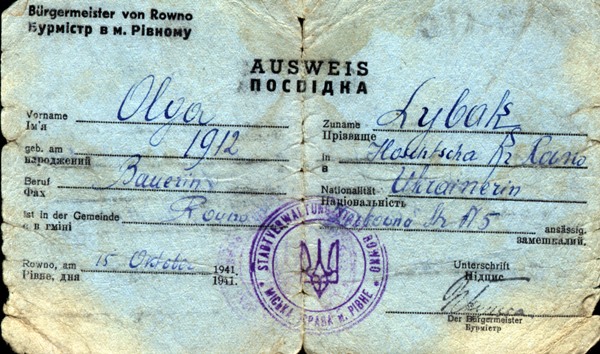 Bürgermeister von Rowno
Бурмістр в м. Рівному
AUSWEIS
ПОСВІДКА
Vorname Olga Zuname Lybak
Ім'я Прізвище
geb. am 1912 in Hoschtscha
народжений в
Beruf Bauerin Nationalität Ukrainerin
Фах Національність
Ist in der Gemeinde Rowno Nr 175 ansässig.
є в гміні замешкалий.
Rowno, am 15 Oktober 1941. Unterschrift
Рівне, дня 1941. Підпис
STADTVERWALTUNG ROWNO
МІСЬКА УПРАВА м. РІВНЕ
Der Bürgermeister
Бурмістр